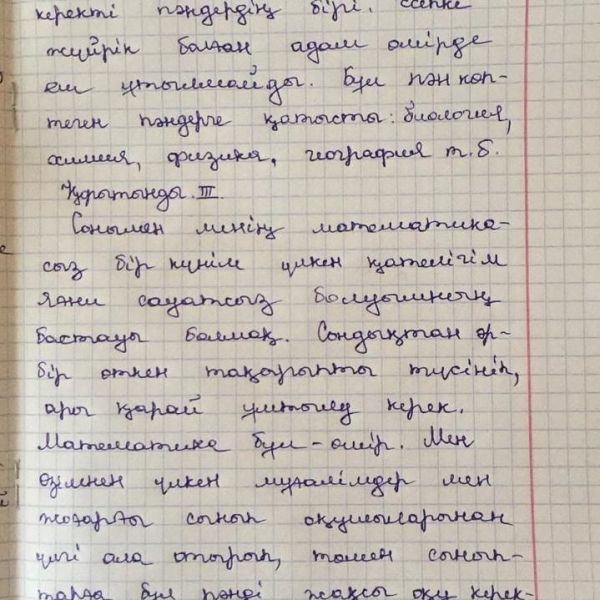 керекті пәндердің бірі. Есепке
жүйрік болған адам өмірде
еш ұтылмайды. Бұл пән көп-
теген пәндерге қатысты: биология,
химия, физика, география т.б.
Қорытынды. III.
Сонымен менің математика-
сыз бір күнім үлкен қателігім
яғни сауатсыз болуымның
бастауы болмақ. Сондықтан әр-
бір өткен тақырыпты түсініп,
ары қарай ұмтылу керек.
Математика бұл - өмір. Мен
өзімнен үлкен мұғалімдер мен
жоғарғы сынып оқушыларынан
үлгі ала отырып, төмен сынып-
тарға бұл пәнді жақсы оқу керек-